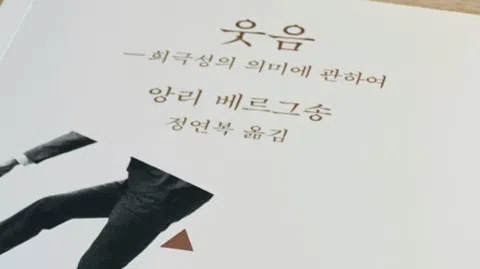 웃음
—희극성의 의미에 관하여
앙리 베르그송
정연복 옮김